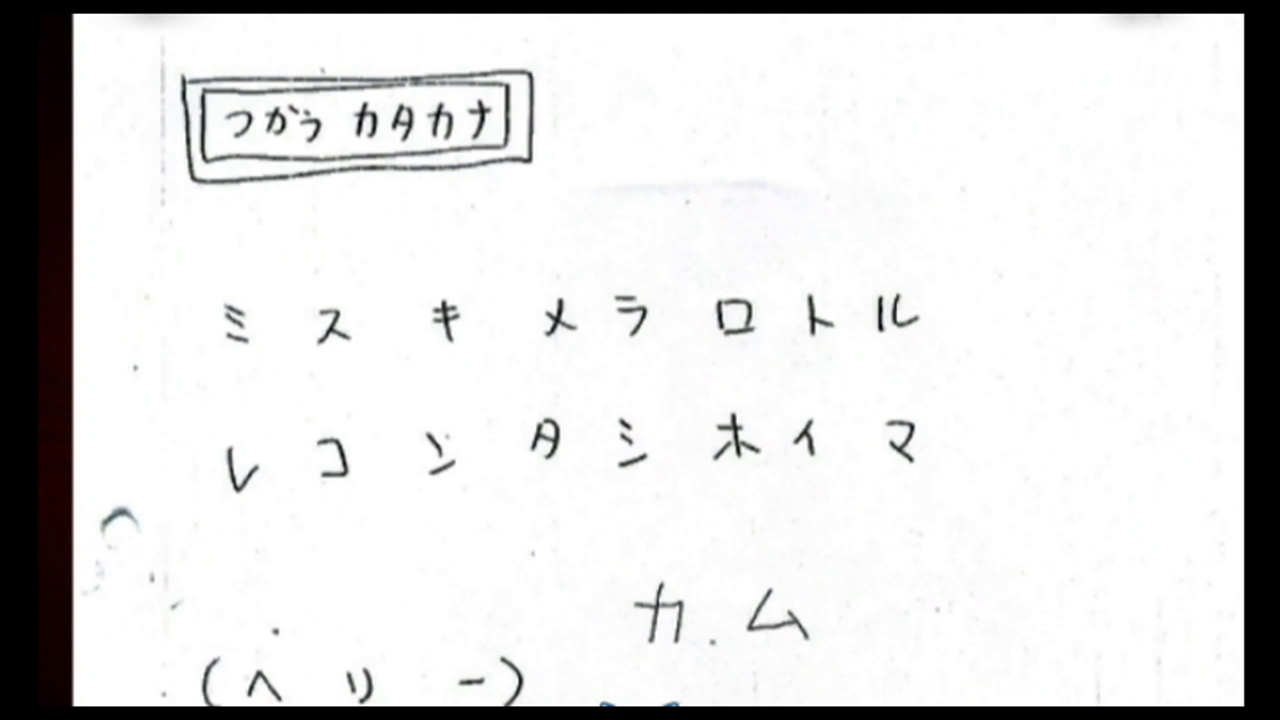 つかう カタカナ
ミ ス キ メ ラ ロ ト ル
レ コ ン タ シ ホ イ マ
カ . ム
(ヘ リ ー)